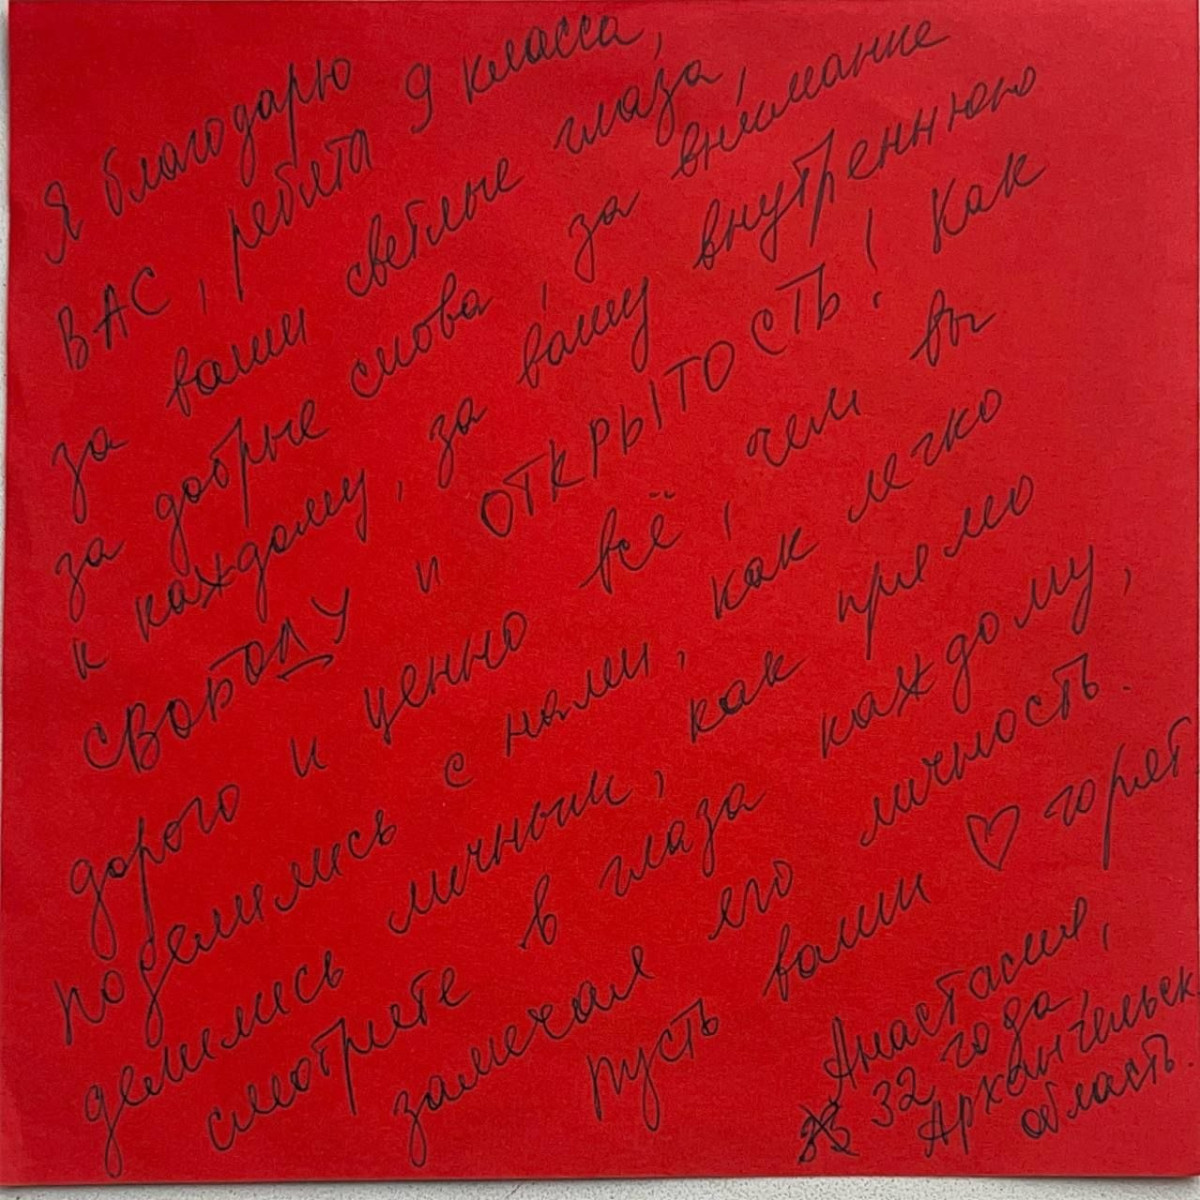 Я благодарю
ВАС, ребята 9 класса,
за ваши светлые глаза,
за добрые слова, за внимание
к каждому, за вашу внутреннюю
СВОБОДУ и ОТКРЫТОСТЬ! Как
дорого и ценно всё, чем вы
поделились с нами, как легко
делились личным, как прямо
смотрите в глаза каждому,
замечая его личность.
Пусть ваши ♡ горят
Анастасия,
32 года,
Архангельск.
область.